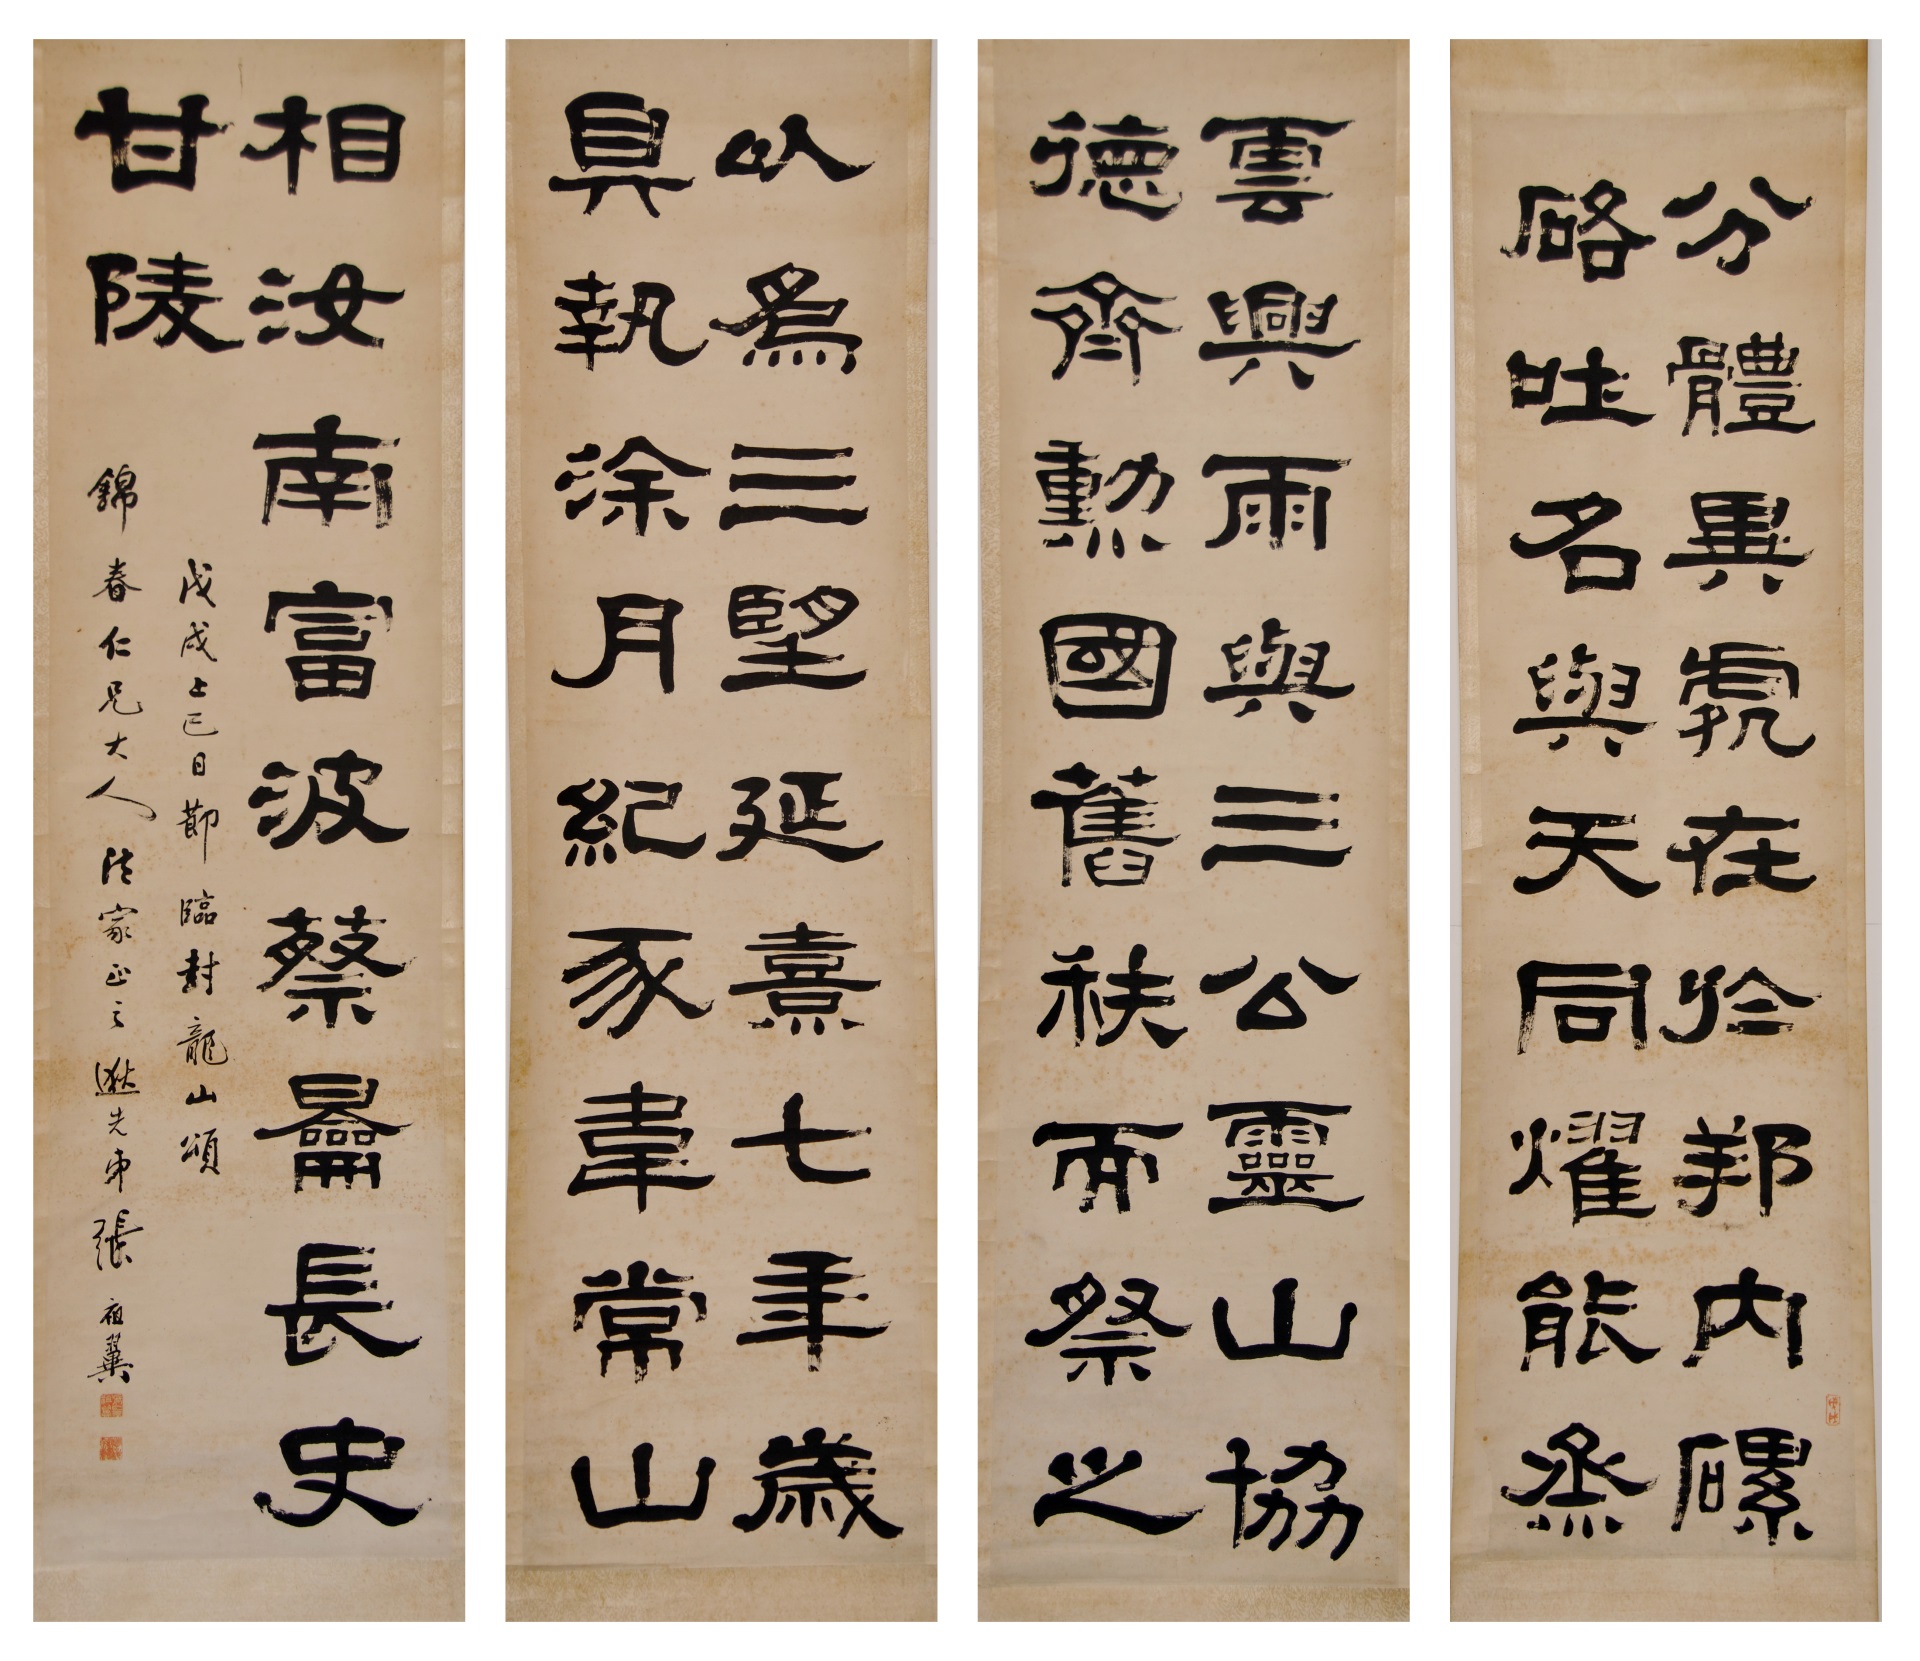 分體異處在於邦內磥
硌吐名與天同燿能烝
雲興雨與三公靈山協
德齊勳國舊秩而祭之
以為三望延熹七年歲
貞執涂月紀豕韋常山
相汝南富波蔡𪛉長史
甘陵
戊戌上巳日節臨封龍山頌
錦春仁兄大人法家正之逖先弟張祖翼